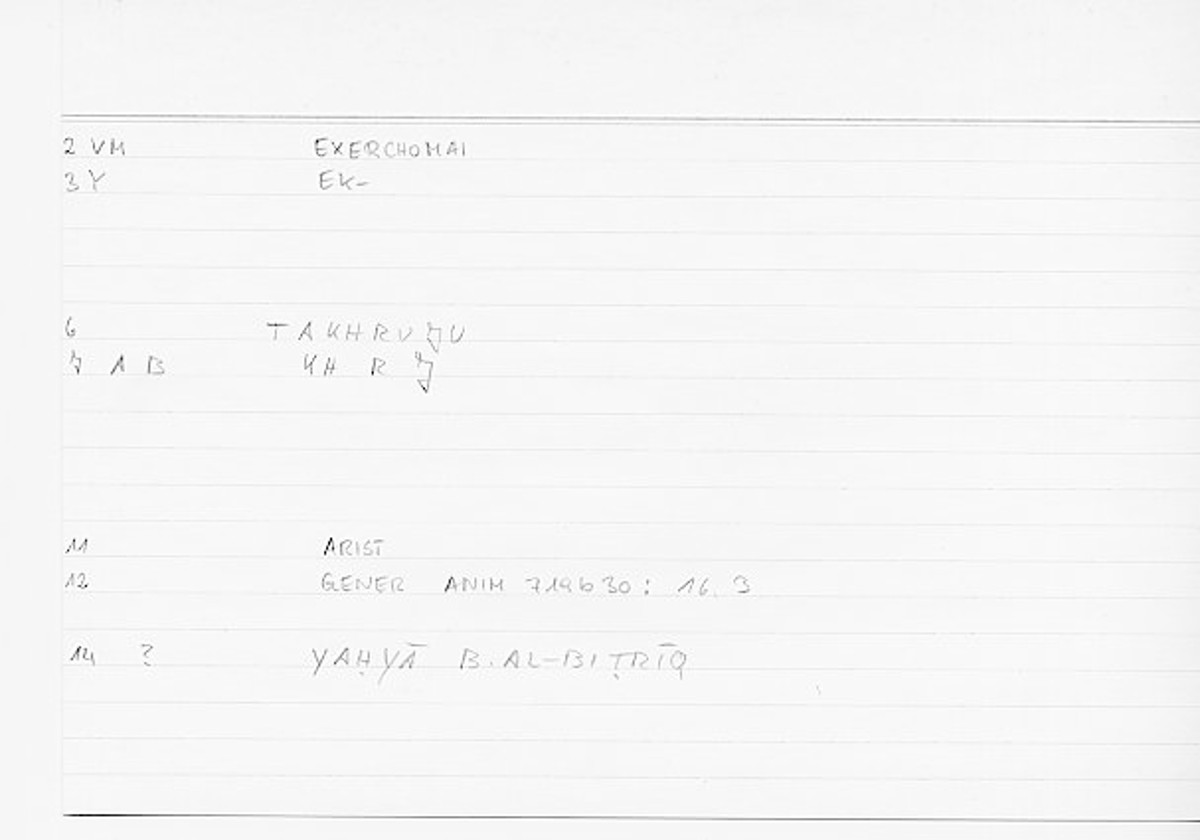 2 VM EXERCHOMAI
3 Y EK-
6 TAKHRUJU
7 A B KH R J
11 ARIST
12 GENER ANIM 719b30: 16.3
14 ? YAḤYĀ B. AL-BIṬRĪQ